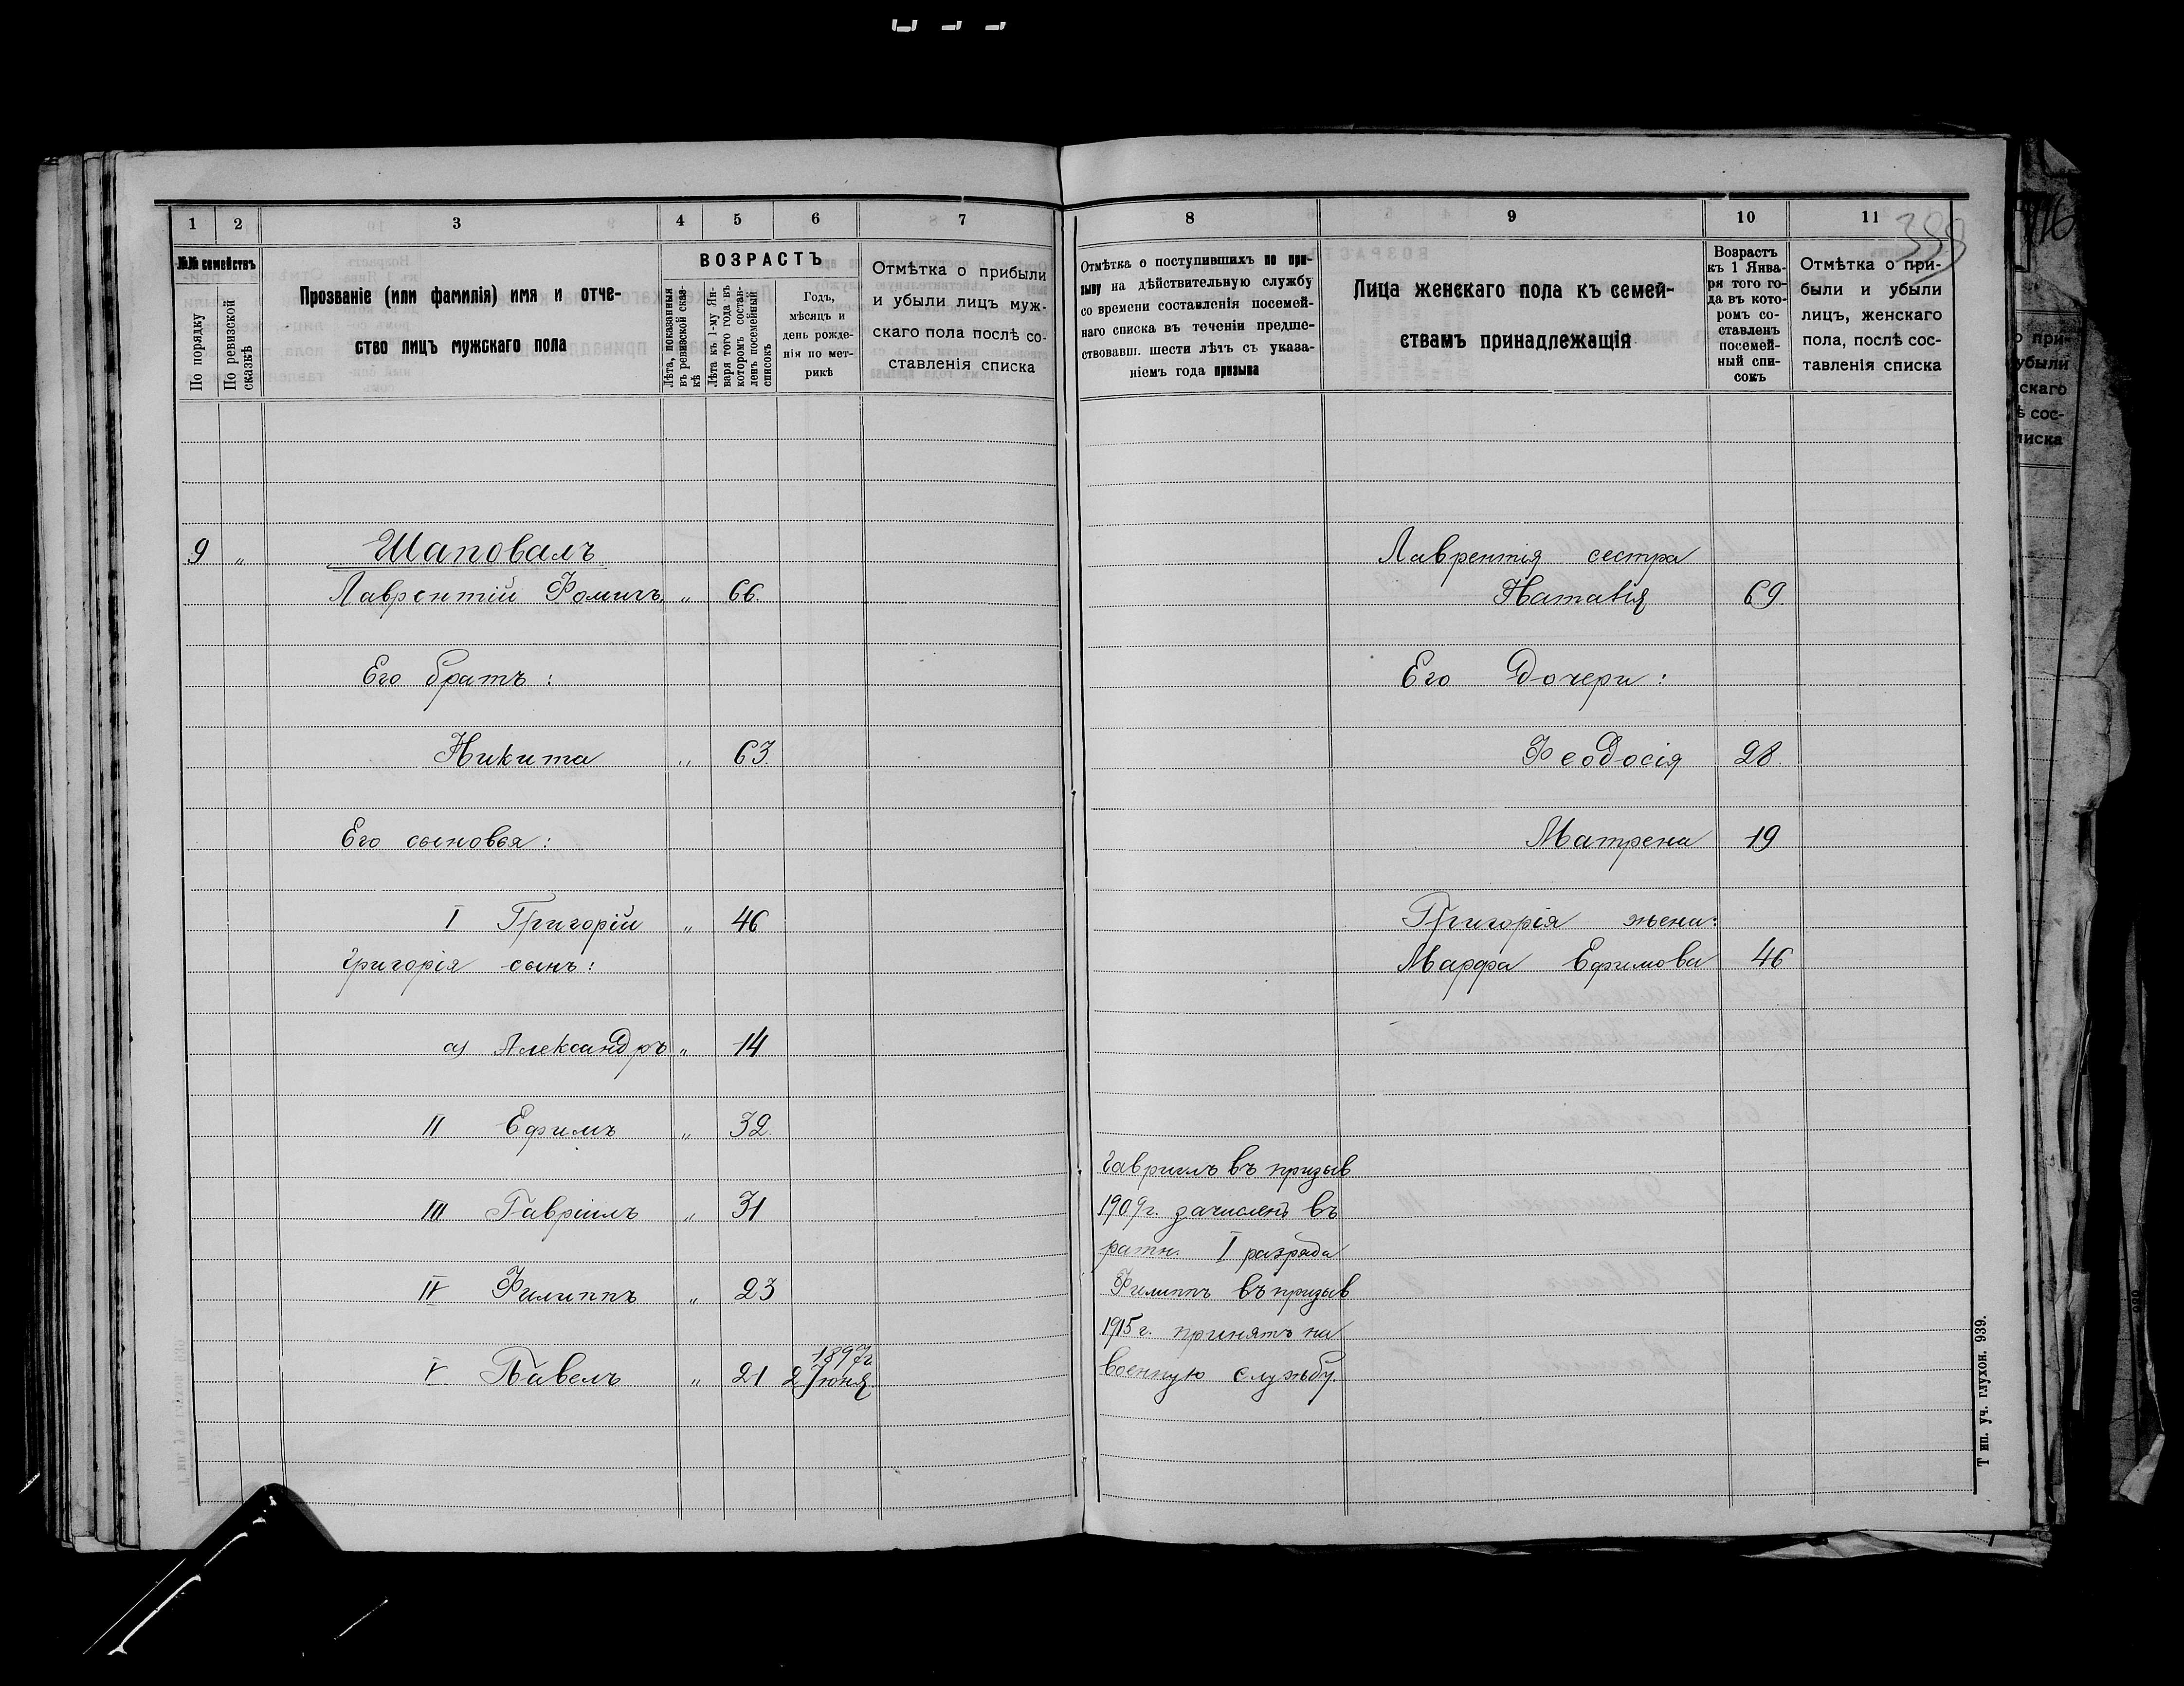 1 2 3 4 5 6 7
№№ семействъ
По порядку
По ревизской сказкѣ
Прозваніе (или фамилія) имя и отче-
ство лицъ мужскаго пола
ВОЗРАСТЪ
Лѣта, показанныя
въ ревизской сказ-
кѣ
Лѣта къ 1-му Ян-
варя того года въ
которомъ состав-
ленъ посемейный
списокъ
Годъ,
мѣсяцъ и
день рожде-
нія по мет-
рикѣ
Отмѣтка о прибыли
и убыли лицъ муж-
скаго пола послѣ со-
ставленія списка
9 " Шаповалъ
Лаврентій Фомичъ " 66.
Его братъ:
Никита " 63.
Его сыновья:
I Григорій " 46
Григорія сынъ:
а) Александръ " 14
II Ефимъ " 32.
III Гавріилъ " 31
IV Филиппъ " 23
V Павелъ " 21 1897г.
2 Іюня
8 9 10 11
388
Отмѣтка о поступившихъ по при-
зыву на дѣйствительную службу
со времени составленія посемей-
наго списка въ теченіи предше-
ствовавш. шести лѣтъ съ указа-
ніемъ года призыва
Лица женскаго пола къ семей-
ствамъ принадлежащія
Возрастъ
къ 1 Янва-
ря того го-
да въ кото-
ромъ со-
ставленъ
посемей-
ный спи-
сокъ
Отмѣтка о при-
были и убыли
лицъ, женскаго
пола, послѣ сос-
тавленія списка
Лаврентія сестра
Наталія 69.
Его дочери:
Феодосія 28.
Матрена 19
Григорія жена:
Марфа Ефимова 46
Гавриилъ въ призыв
1909г. зачисленъ въ
ратн. I разряда
Филиппъ въ призыв
1915г. принятъ на
военную службу.
Тип. уч. глухон. 939.
о при-
убыли
скаго
ѣ сос-
писка